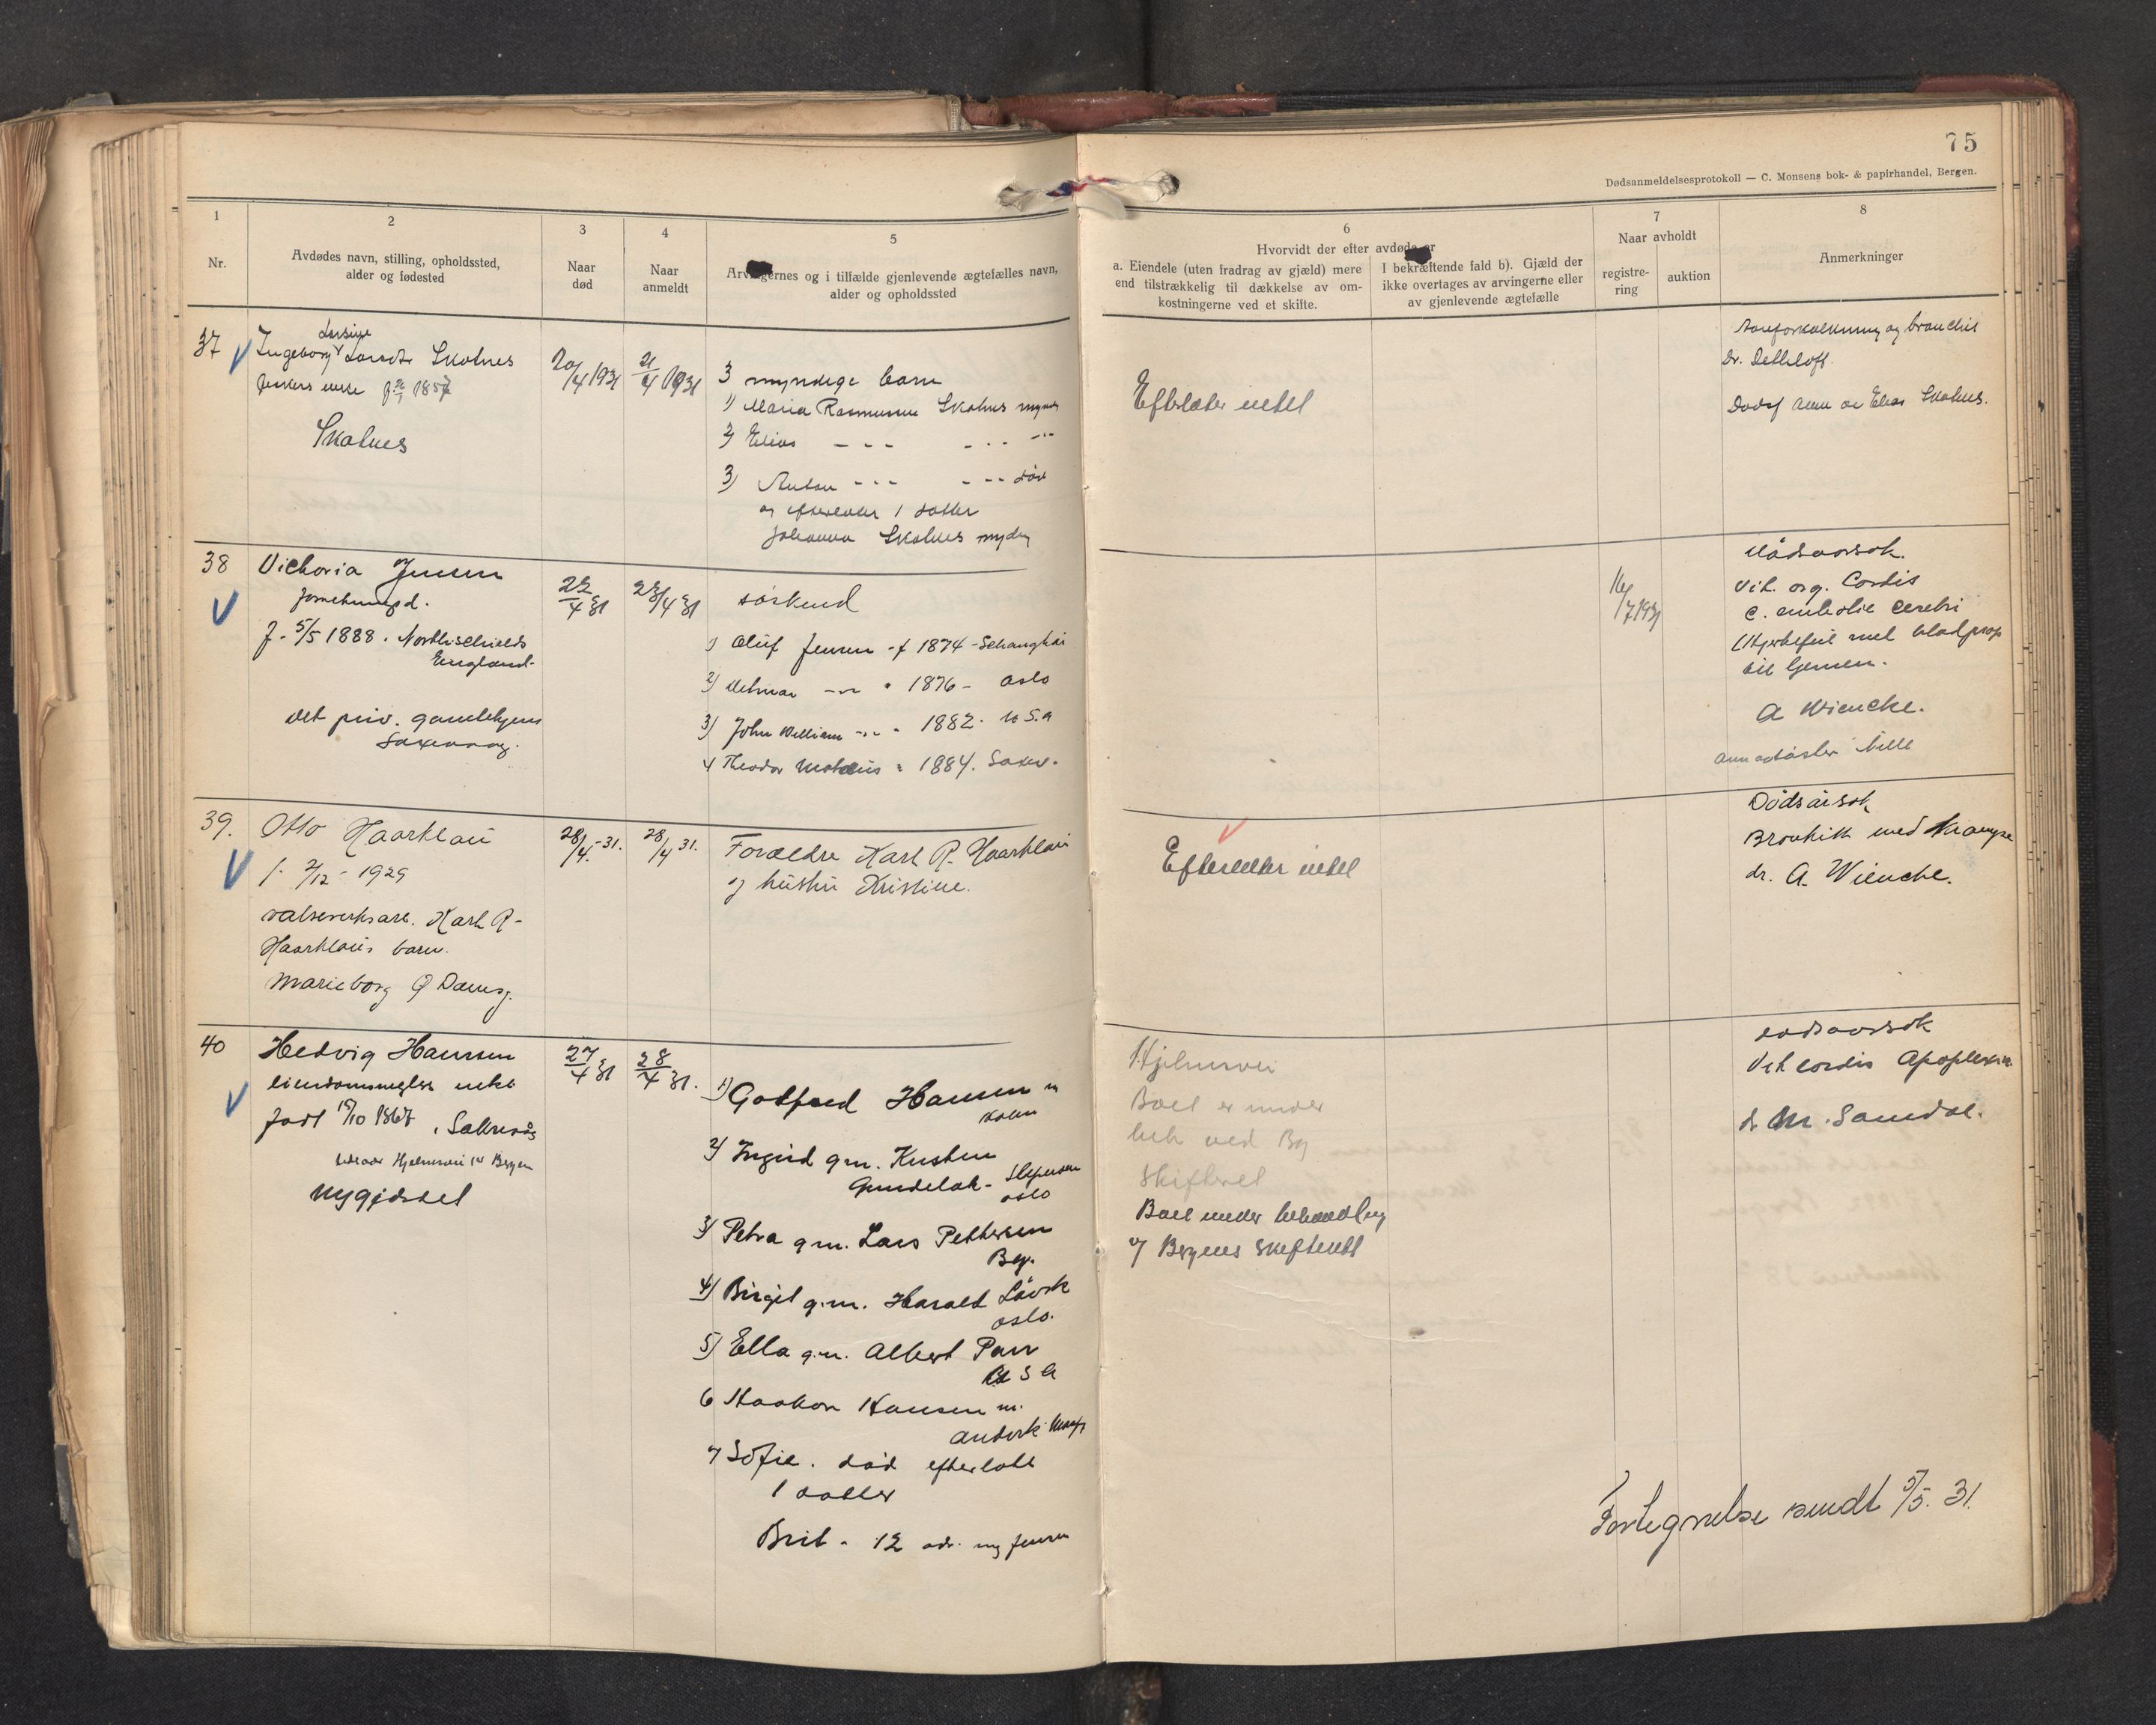 75
Dødsanmeldelsesprotokoll — C. Monsens bok- & papirhandel, Bergen.
1
Nr.
2
Avdødes navn, stilling, opholdssted,
alder og fødested
3
Naar
død
4
Naar
anmeldt
5
og i tilfælde gjenlevende ægtefælles navn,
alder og opholdssted
6
Hvorvidt der efter avdøde er
a. Eiendele (uten fradrag av gjæld) mere
end tilstrækkelig til dækkelse av om-
kostningerne ved et skifte.
I bekræftende fald b). Gjæld der
ikke overtages av arvingerne eller
av gjenlevende ægtefælle
7
Naar avholdt
registre-
ring
auktion
8
Anmerkninger
37
Ingeborg Larsdtr Skolnes
enke 1857
Skolnes
20/4 1931
21/4 1931
3 myndige barn
1) Maria Rasmussen Skolnes
2) Elias - - - - - -
3) Anton - - - - - - død
og efterlater 1 datter
Johanna Skolnes myndig
Efterlater intet
Aareforkalkning og bronchit
Dr. Dethloff.
av Elias Skolnes.
38
Vichoria Jensen
f. 5/5 1888. Northschields
England.
det priv. gamlehjem
22/4 31
23/4 31
søskend
1) Oluf Jensen f 1874 - Schanghai
2) 1876 - Oslo
3) John William 1882. U S. A
4) Theodor 1884.
16/7 1931
Dødsaarsok.
Vit. org. Cordis
c. embolie cerebri
(Hjertefeil med blodprop
til hjernen.
A Wiencke.
39.
Otto Haarklau
f. 2/12 - 1929
valseverksarb. Karl R-
Haarklaus barn.
Marieborg Damsg.
28/4 - 31.
28/4 31.
Forældre Karl R. Haarklau
og hustru Kristine.
Efterlater intet
Dødsårsok
Bronkitt med Krampe
dr. A. Wiencke.
40
Hedvig Hansen
eiendomsmegler enke
født 19/10 1867,
Hjelmsvei Bergen
Nygjærdet
27/4 31
28/4 31.
1) Gotfred Hansen m
2) Ingrid g.m. Kristen
Oslo
3) Petra g m. Lars Pettersen
Bg.
4) Birgit g.m. Harald
Oslo.
5) Ella g.m. Albert Parr
U S A
6 Haakon Hansen m.
7 Sofie. død efterlatt
1 datter
Brit - 12 Jensen
Hjelmsvei
Boet er under
beh ved Bg
Skifteret
Boet under behandling
v/ Bergens Skifterett
Dødsaarsok
Vit cordis Apoplexia
dr M. Samdal.
Fortegnelse sendt 5/5. 31.